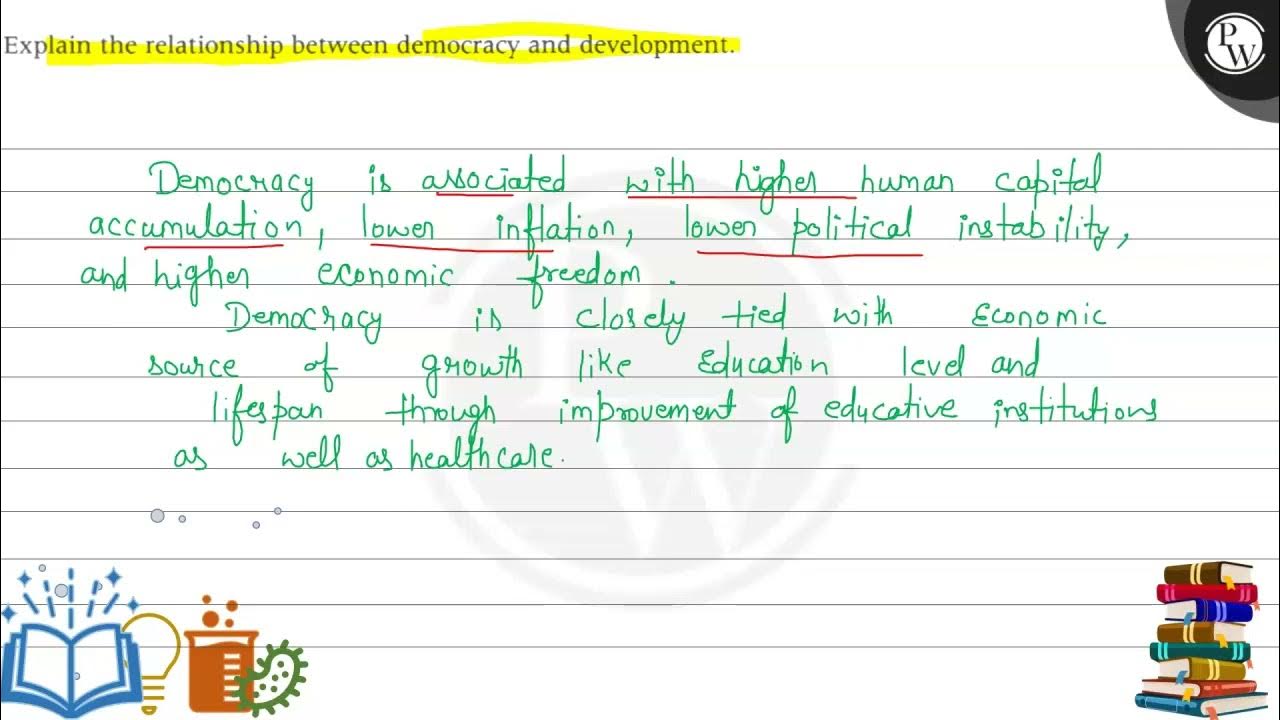 Explain the relationship between democracy and development.
PW
Democracy is associated with higher human capital
accumulation, lower inflation, lower political instability,
and higher economic freedom.
Democracy is closely tied with economic
source of growth like education level and
lifespan through improvement of educative institutions
as well as healthcare.